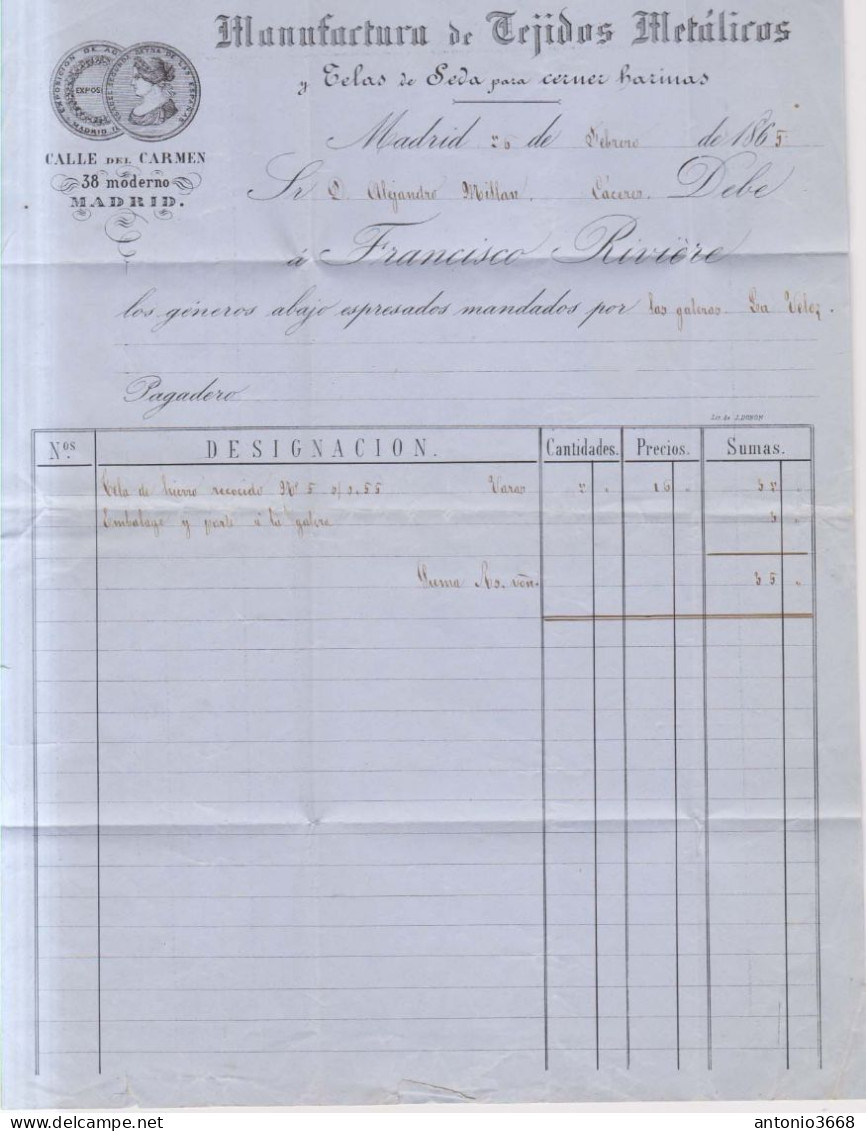 Manufactura de Tejidos Metálicos
y Telas de Seda para cerner harinas
EXPOSICION DE AG
EXPOSI
MADRID
CALLE DEL CARMEN
38 moderno
MADRID.
Madrid 26 de Febrero de 1865
Sr D. Alejandro Millan. Cáceres. Debe
á Francisco Rivière
los géneros abajo espresados mandados por las galeras La Veloz.
Pagadero
Lit. de J. DONON
Nos. DESIGNACION. Cantidades. Precios. Sumas.
Tela de hierro recocido No 5 0/0.55 Varas 2 " 16 " 32 "
Embalage y porte á la galera 3 "
Suma Rs. von. 35 "
antonio3668